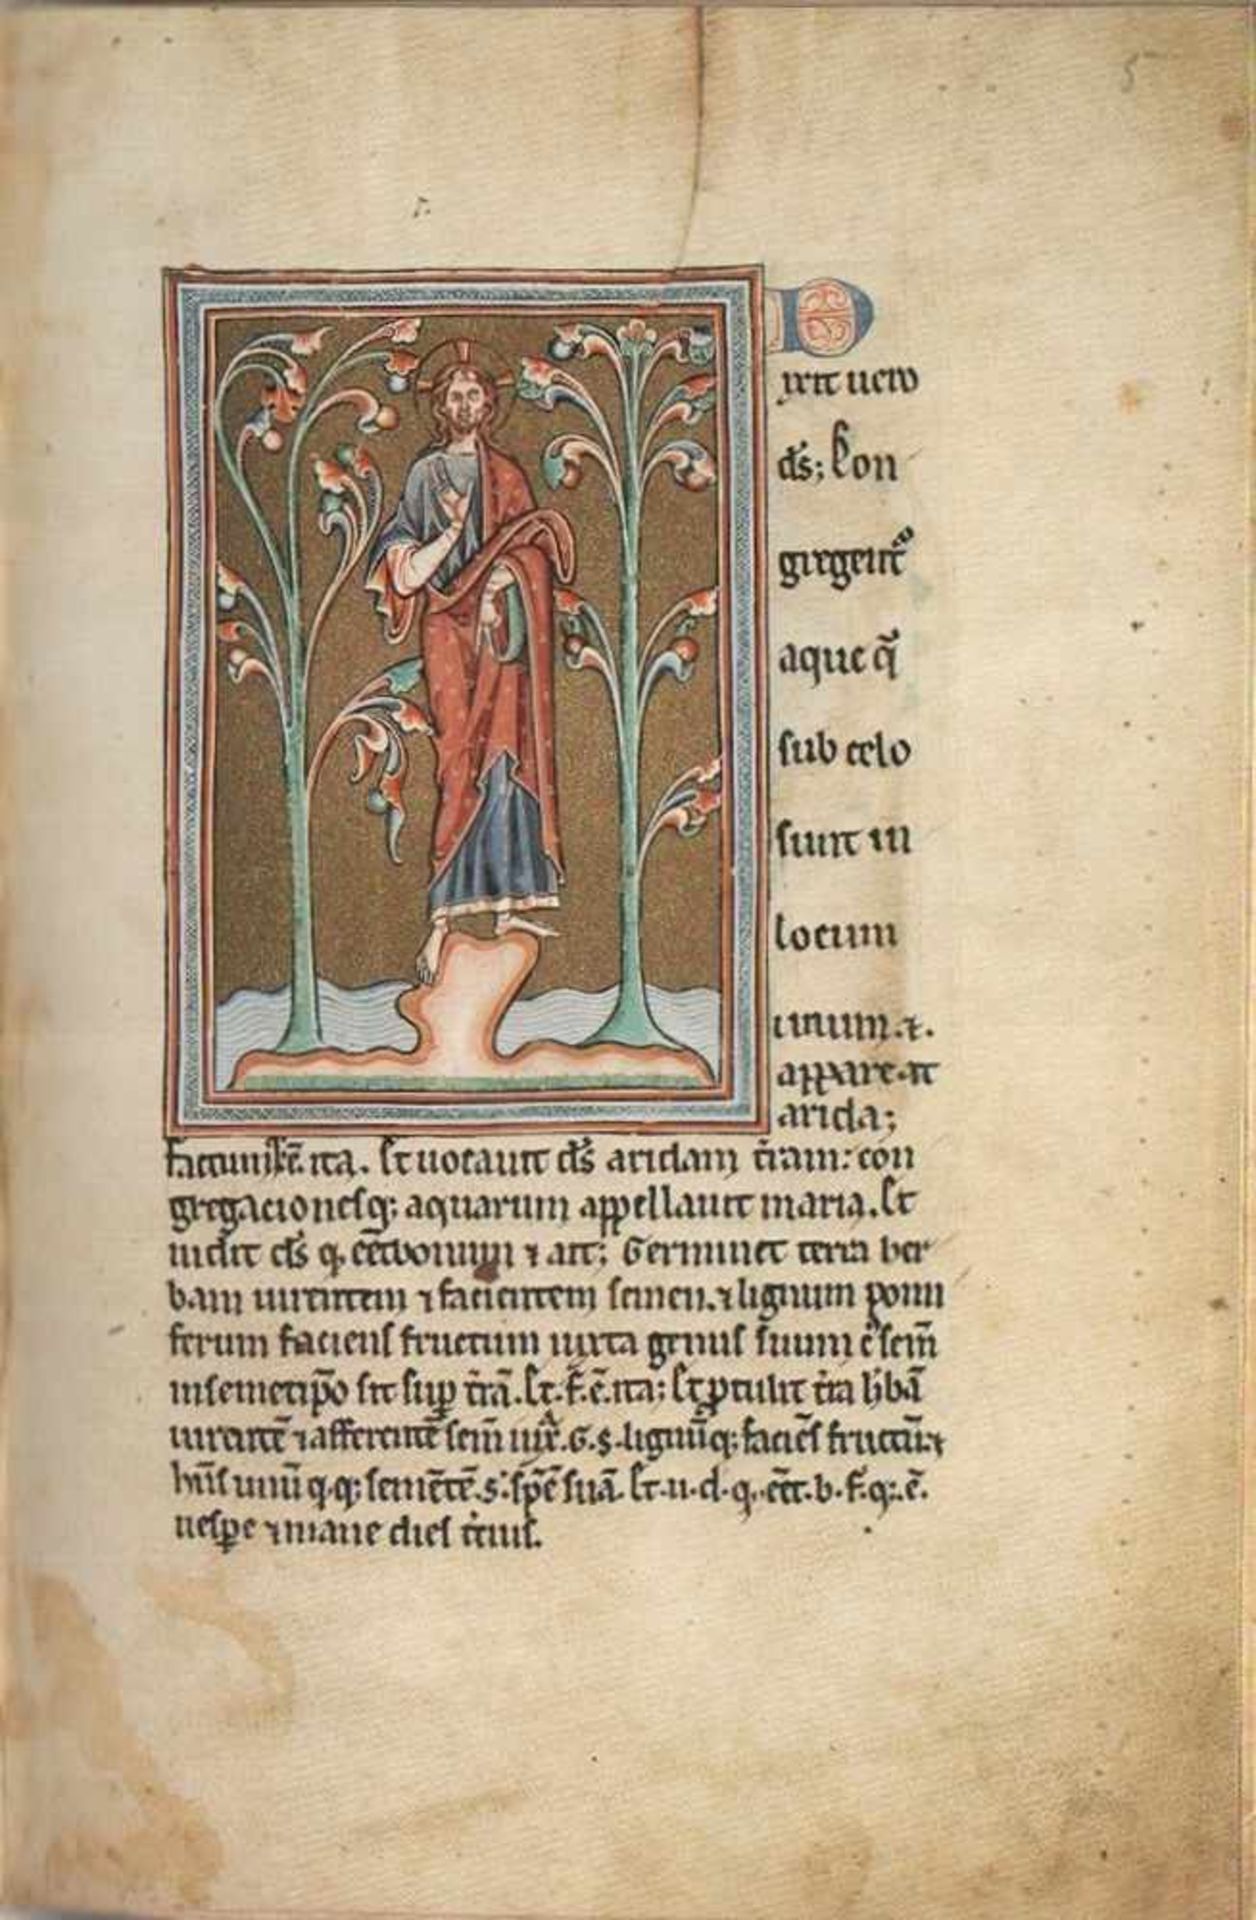 5
D
ixit uero
d̄s; Con
gregent᷑
aque q̄
sub celo
sunt in
locum
unum .⁊.
appareat
arida;
factumq; ē. ita. Et uocauit d̄s aridam t̄ram: con
gregacionesq; aquarum appellauit maria. Et
uidit d̄s q. eēt bonum ⁊ ait; Germinet terra her
bam uirentem ⁊ facientem semen. ⁊ lignum pomi
ferum faciens fructum iuxta genus suum c᷒ sem̄
in semetip̄o sit sup t̄rā. Et. f. ē. ita; Et ꝓtulit t̄ra h̓bā
uirentē ⁊ afferentē sem̄ iux̄. G. s. lignūq; faciēs fructū. ⁊
hn̄s unū q. q; sementē. s. spēē suā. Et. u. d. q. eēt. b. f. q;. ē.
uesꝑe ⁊ mane dies t̓tius.